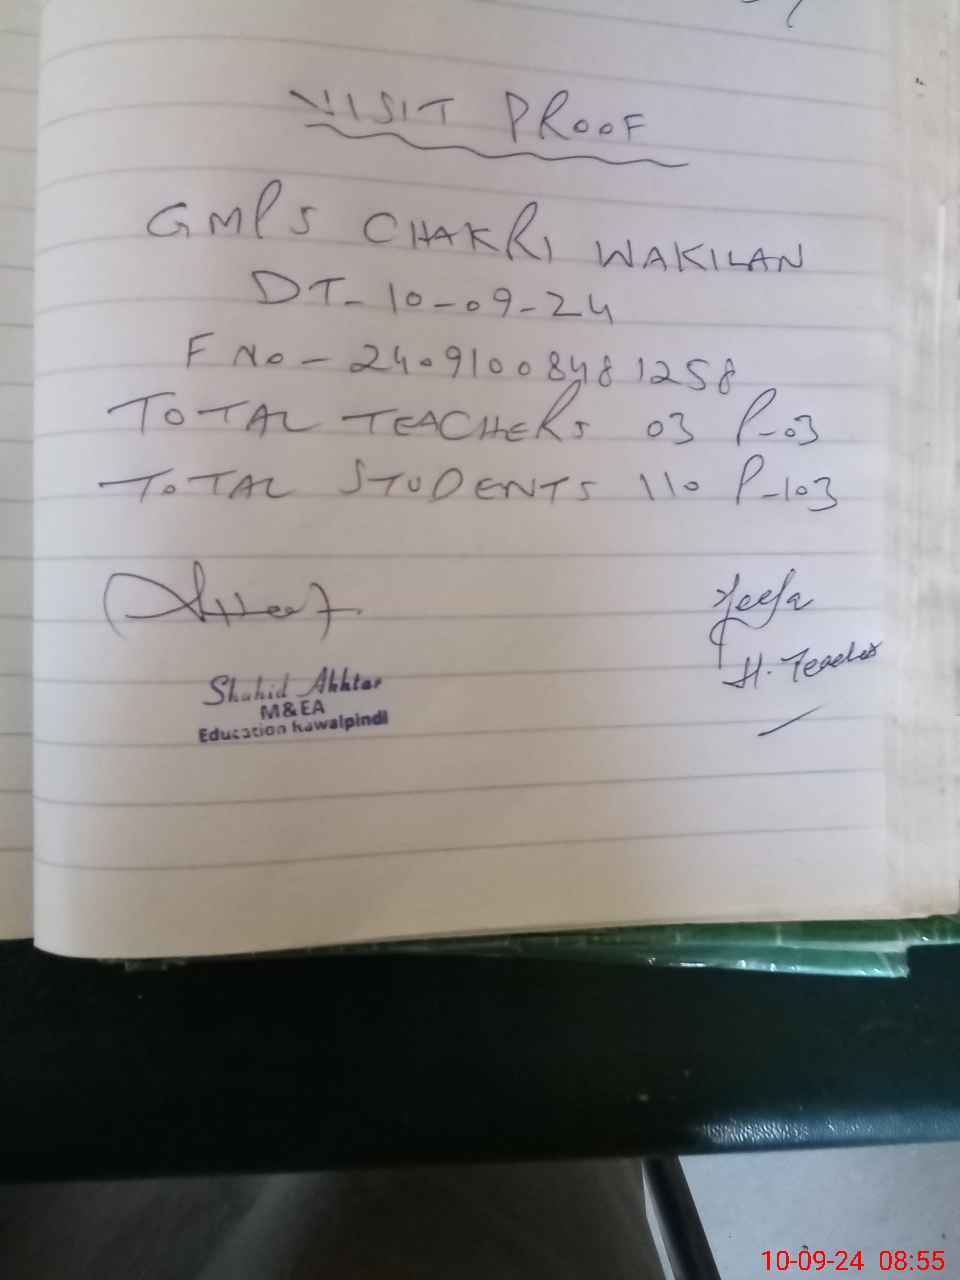 VISIT PROOF
GMPS CHAKRI WAKILAN
DT- 10-09-24
F No - 24091008481258
TOTAL TEACHERS 03 P-03
TOTAL STUDENTS 110 P-103
H. Teacher
Shahid Akhtar
M&EA
Education Rawalpindi
10-09-24 08:55